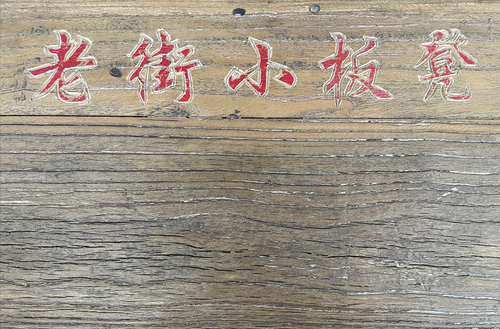 老街小板凳